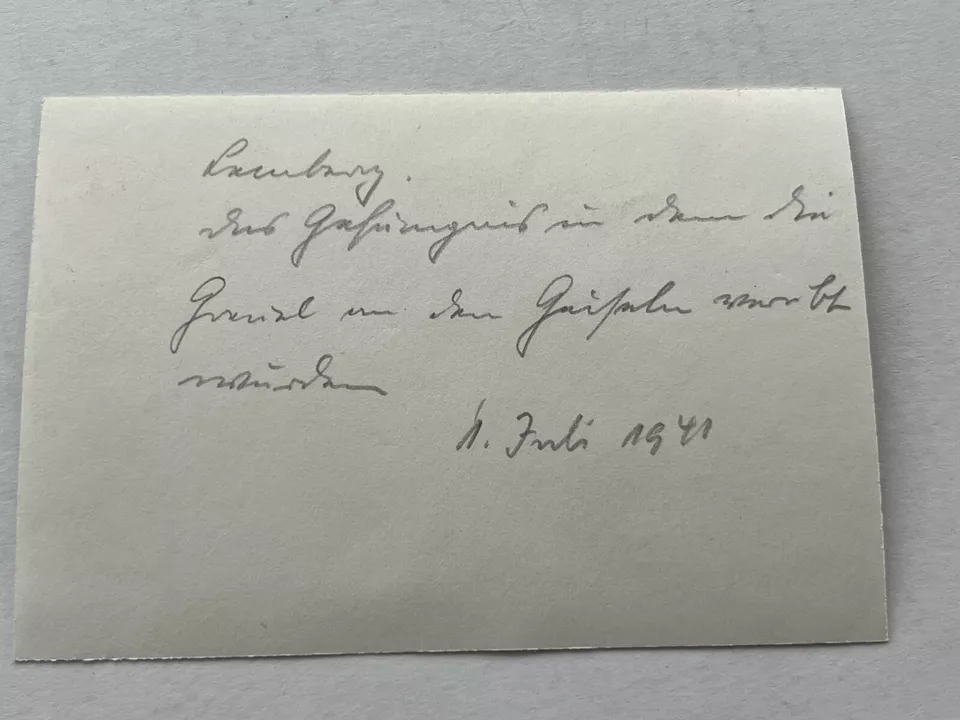 Lemberg.
das Gefängnis in dem die
Greuel an den Geiseln verübt
wurden
1. Juli 1941